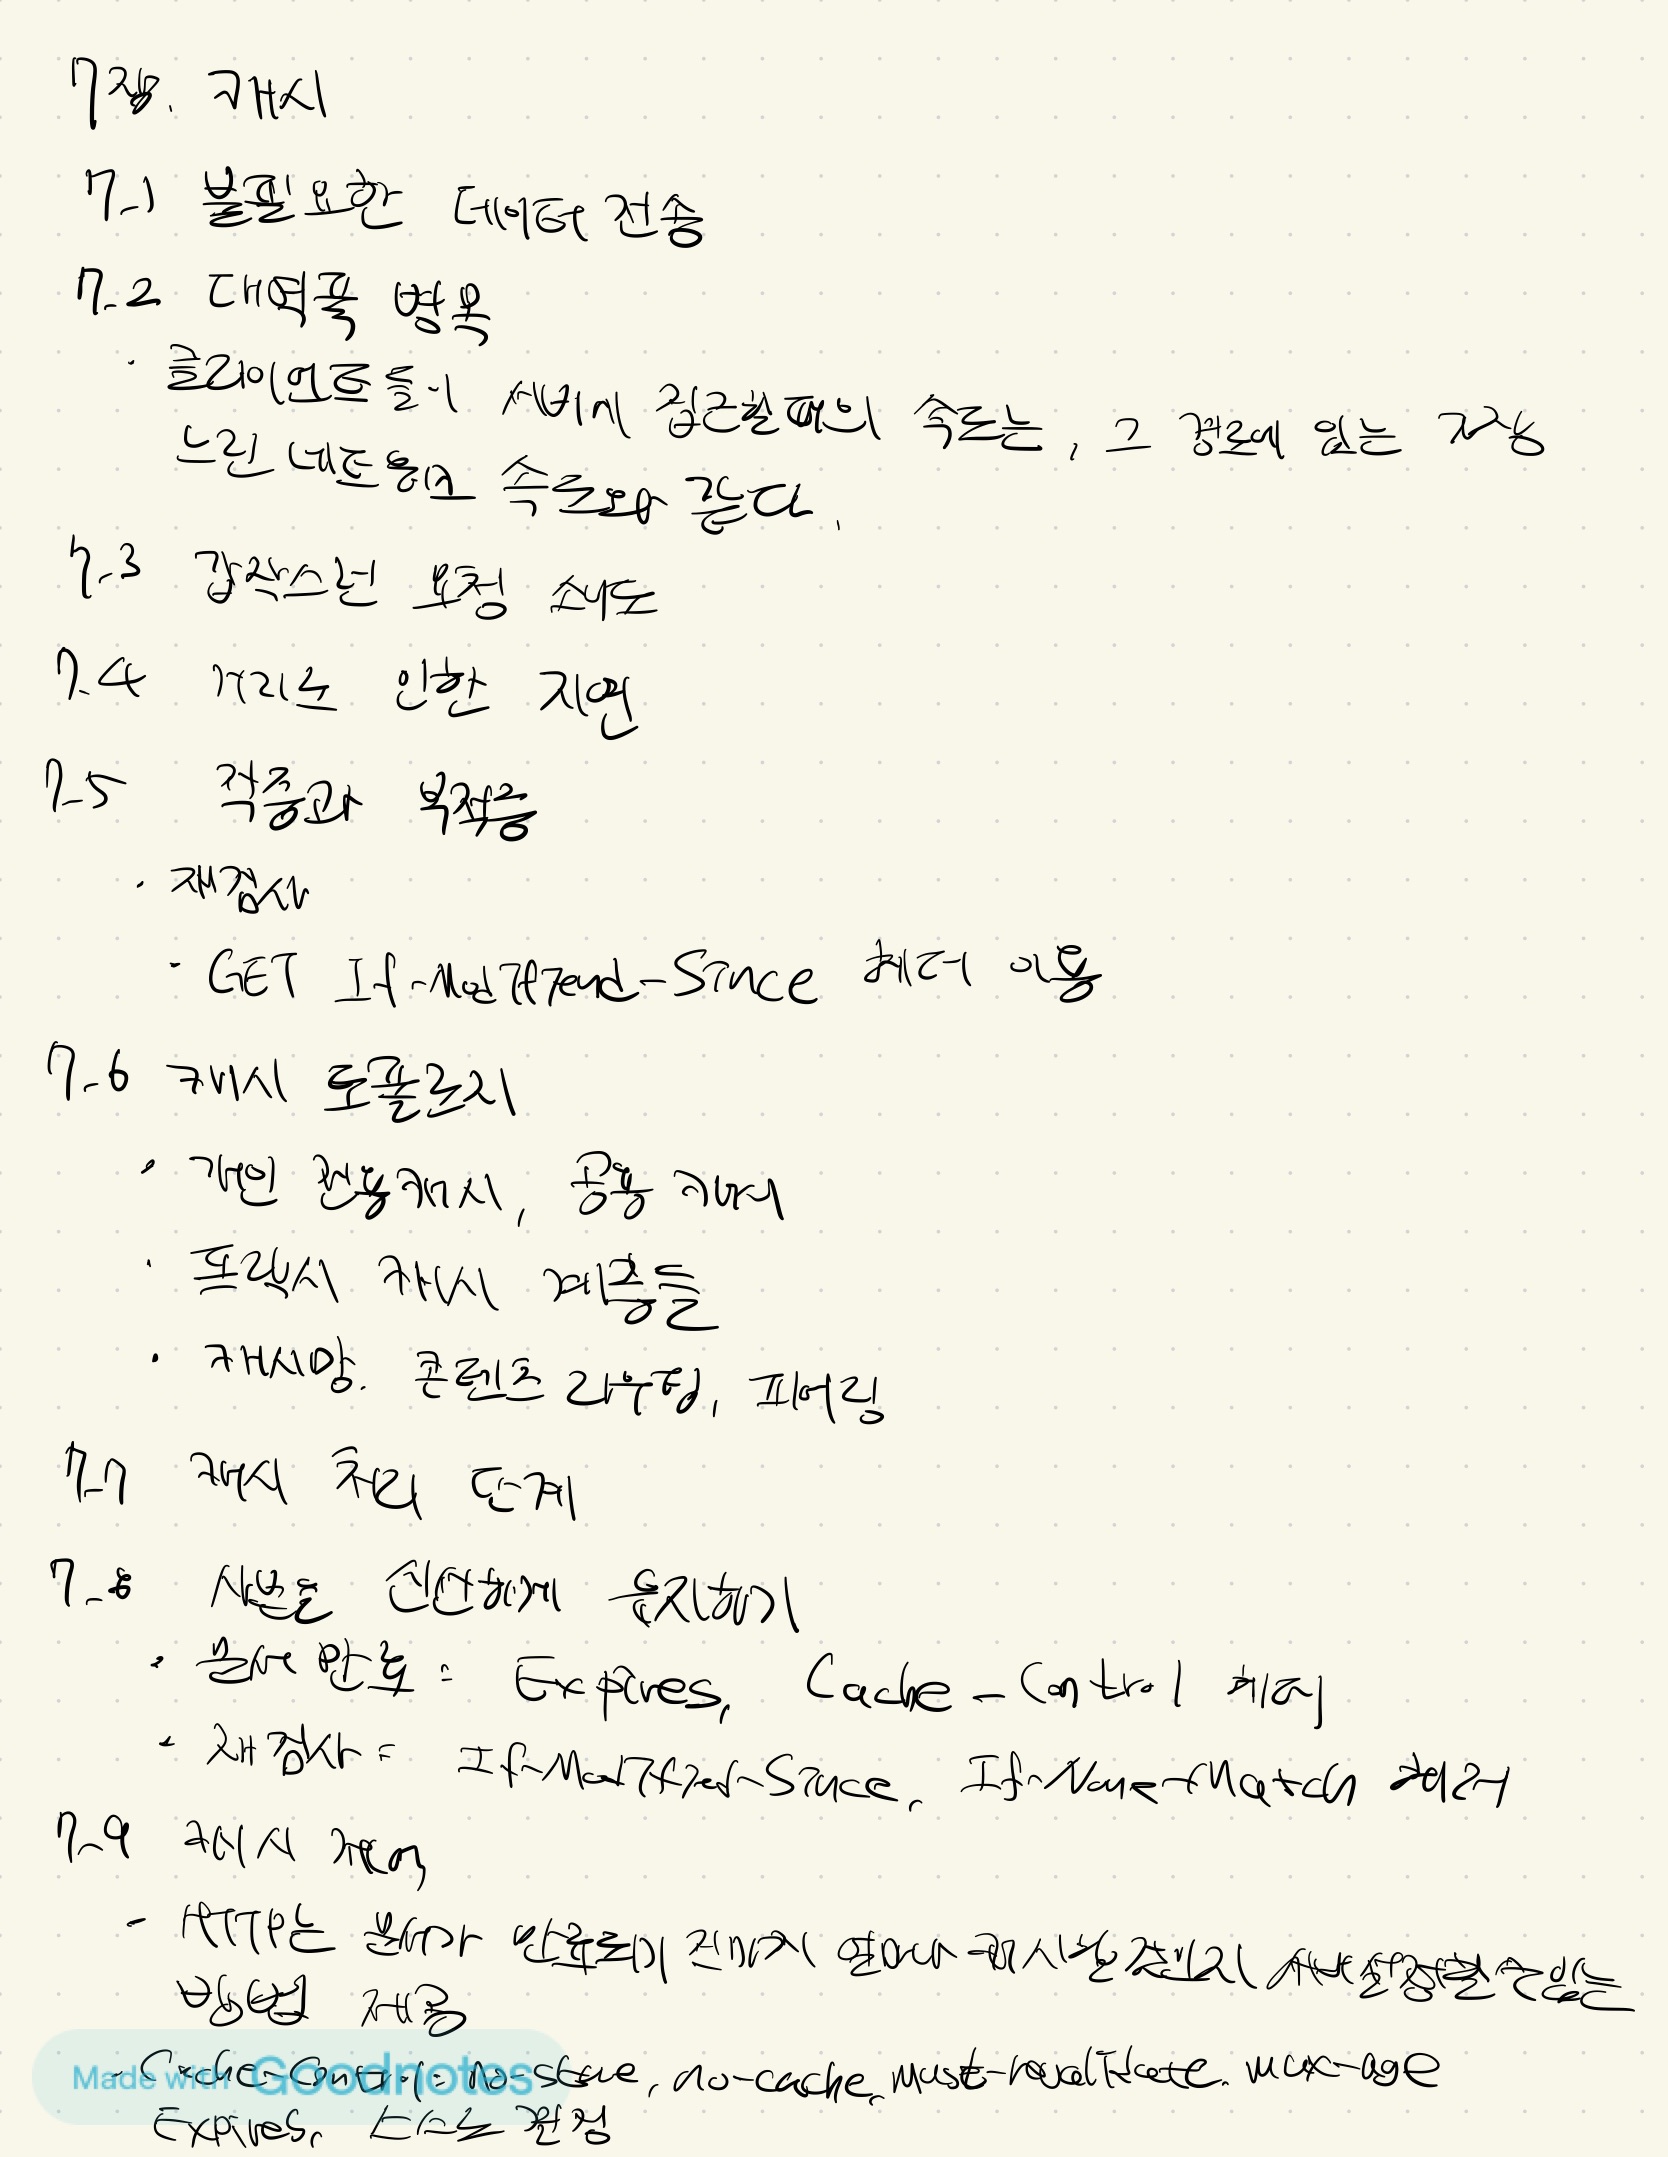 7장. 캐시
7-1 불필요한 데이터 전송
7-2 대역폭 병목
· 클라이언트들이 서버에 접근할때의 속도는, 그 경로에 있는 가장
느린 네트워크 속도와 같다.
7-3 갑작스런 요청 쇄도
7-4 거리로 인한 지연
7-5 적중과 부적중
· 재검사
- GET If-Modified-Since 헤더 이용
7-6 캐시 토폴로지
· 개인 전용캐시, 공용 캐시
· 프락시 캐시 계층들
· 캐시망. 콘텐츠 라우팅, 피어링
7-7 캐시 처리 단계
7-8 사본을 신선하게 유지하기
· 문서 만료 = Expires, Cache-Control 헤더
· 재검사 = If-Modified-Since, If-None-Match 헤더
7-9 캐시 제어
- HTTP는 문서가 만료되기 전까지 얼마나 캐시할 것인지 서버 설정할 수 있는
방법 제공
- Cache-Control = no-store, no-cache, must-revalidate. max-age
Expires,
Made with Goodnotes